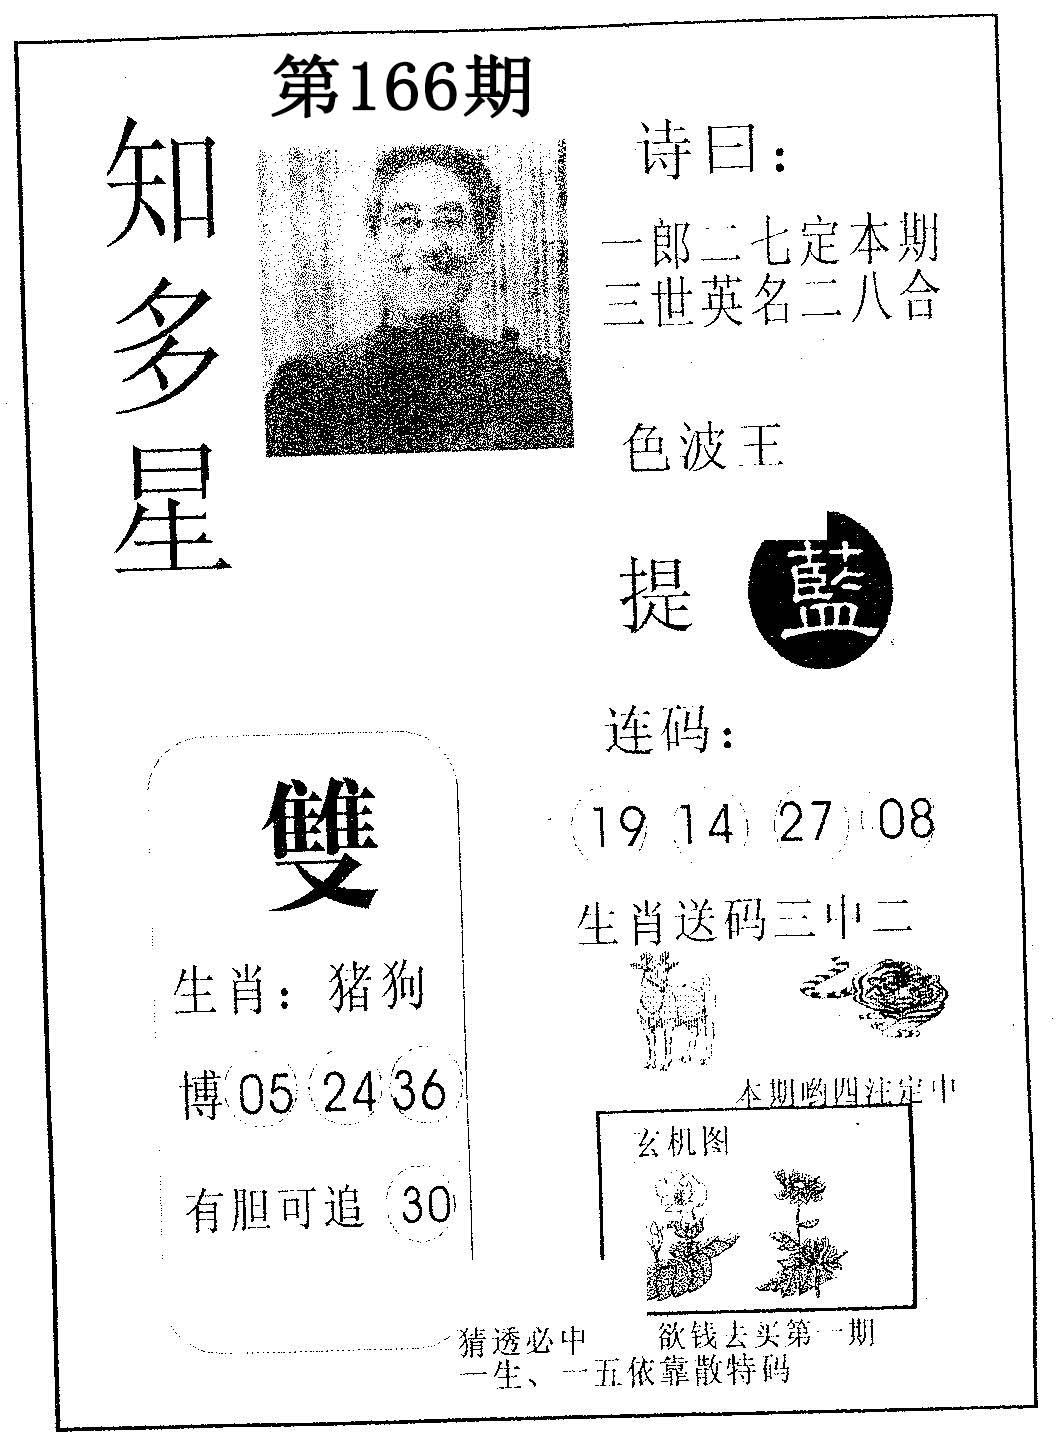 第166期
知多星
诗曰：
一郎二七定本期
三世英名二八合
色波王
提 藍
连码：
19 14 27 08
生肖送码三中二
雙
生肖：猪狗
博 05 24 36
有胆可追 30
本期哟四注定中
玄机图
猜透必中 欲钱去买第一期
一生、一五依靠散特码